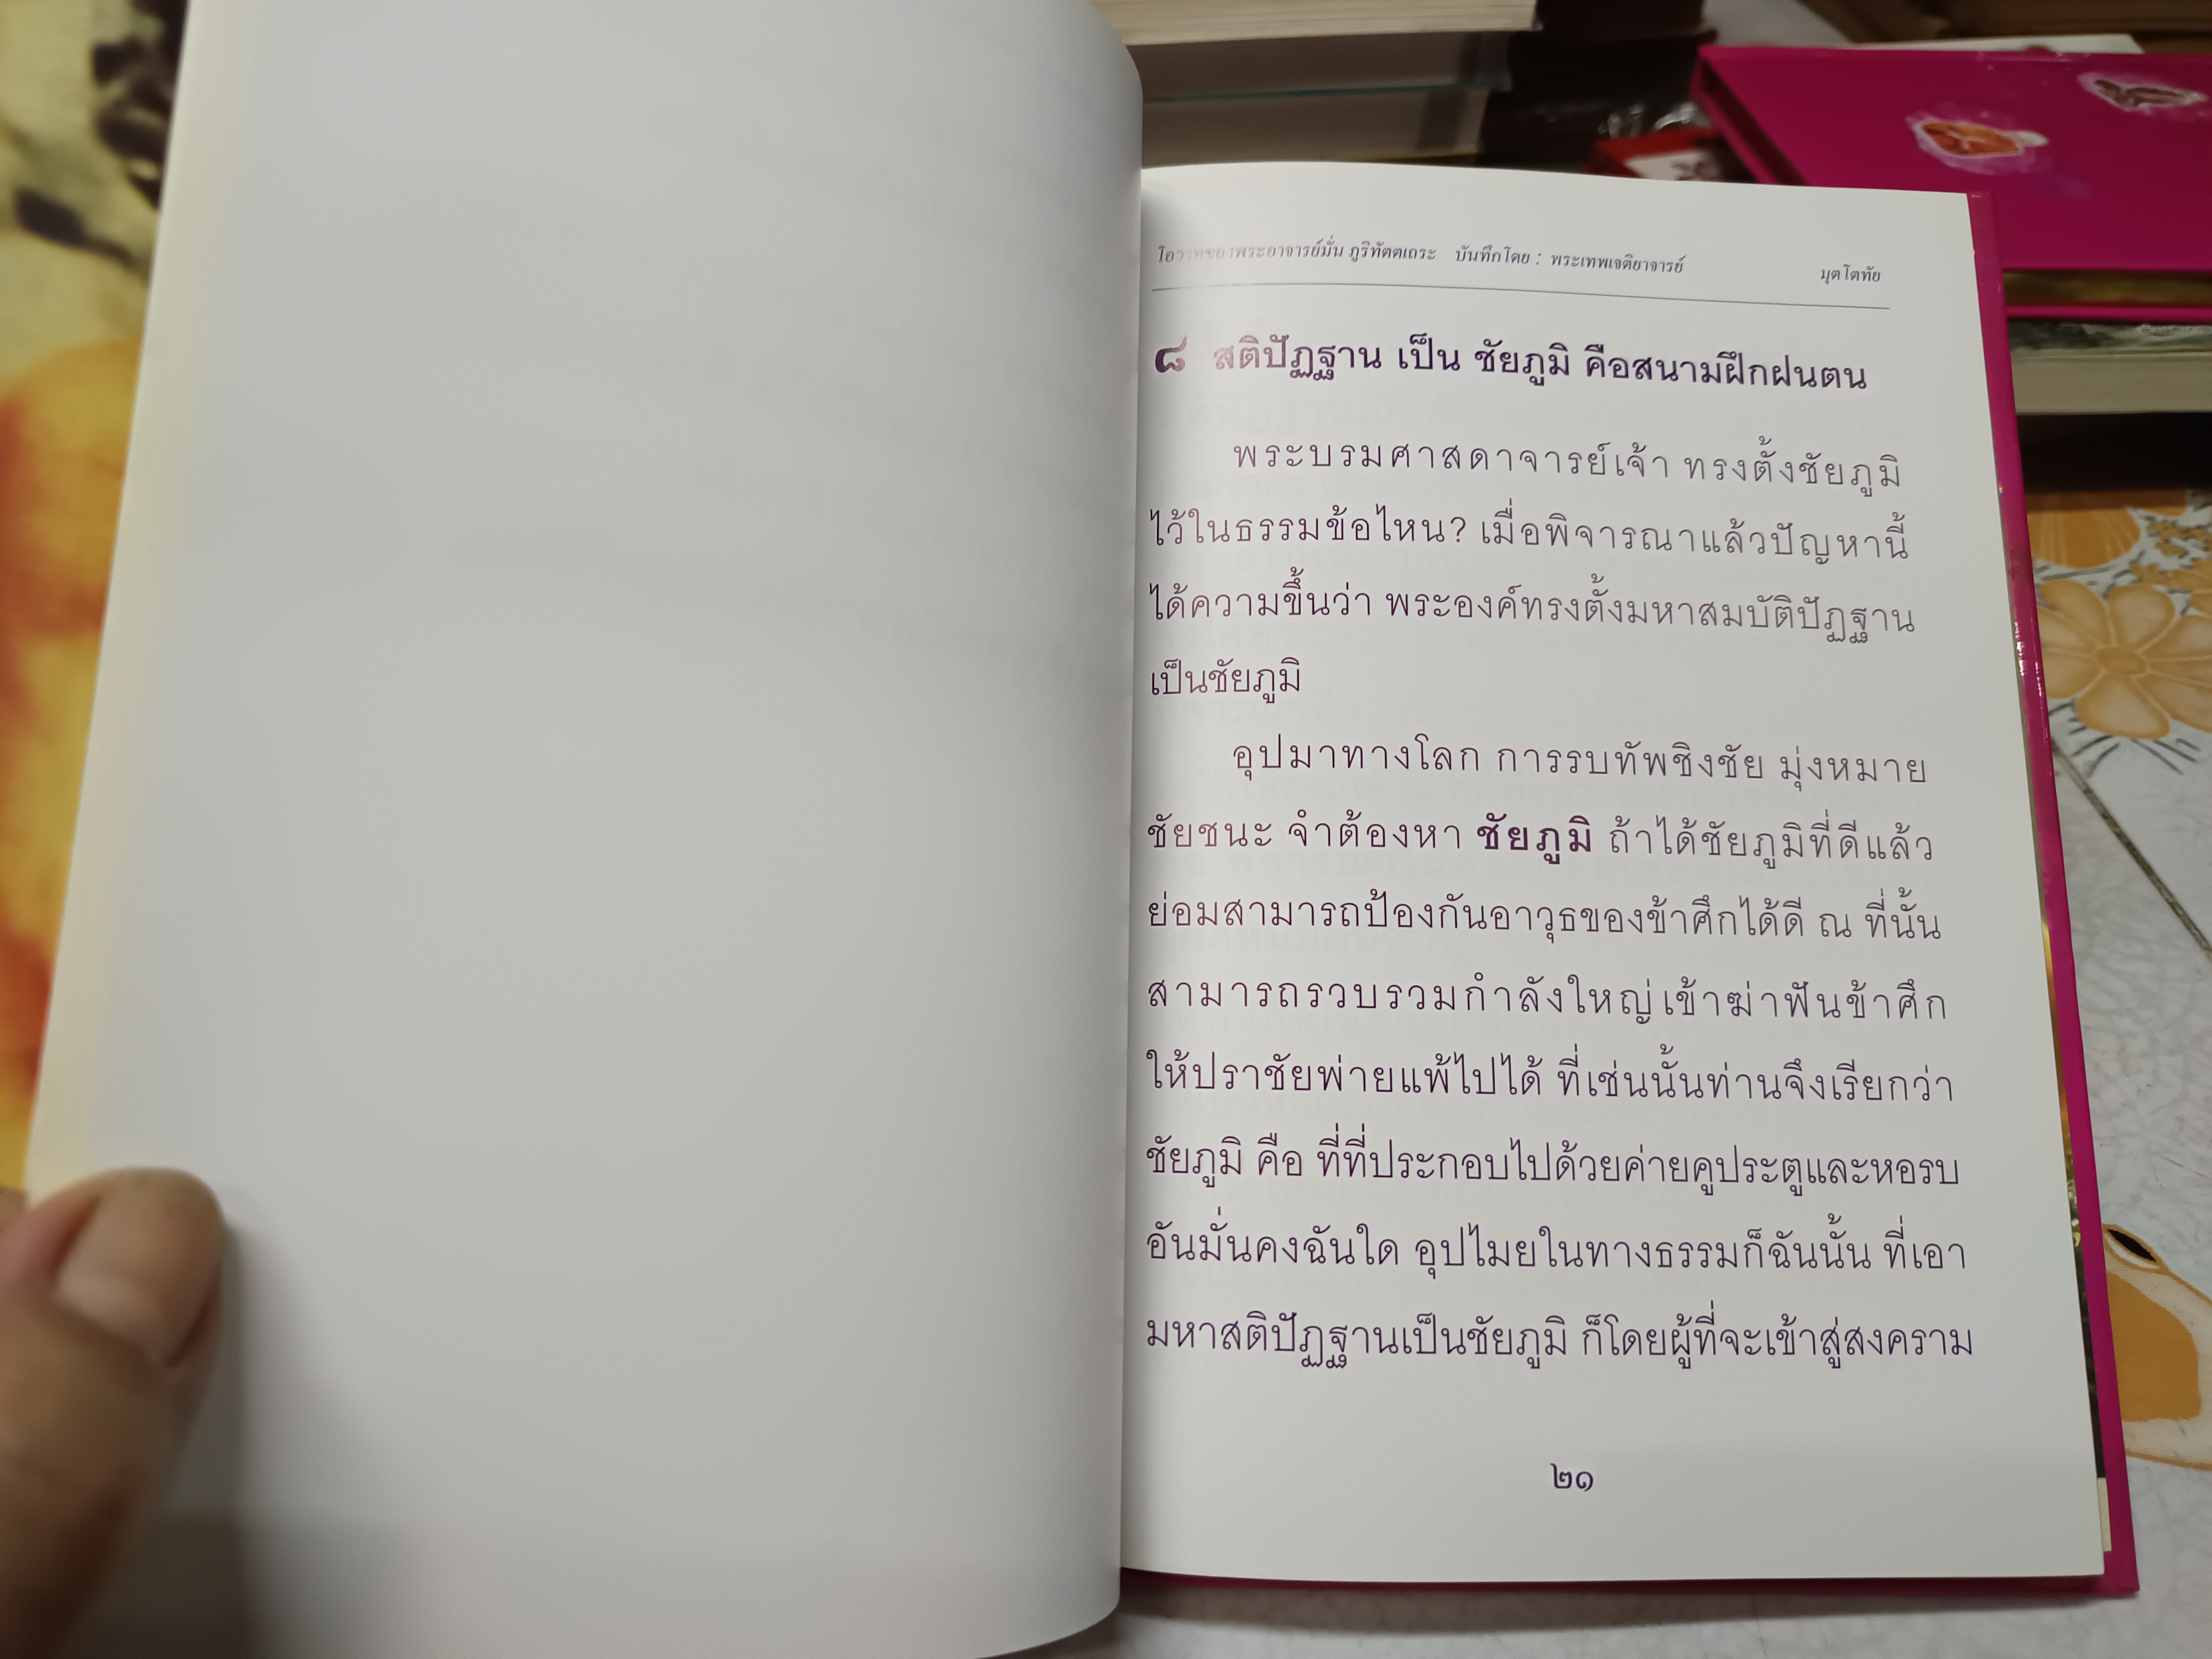 โอวาทของพระอาจารย์มั่น ภูริทัตตเถระ บันทึกโดย : พระเทพเจติยาจารย์ มุตโตทัย
๘ สติปัฏฐาน เป็น ชัยภูมิ คือสนามฝึกฝนตน
พระบรมศาสดาจารย์เจ้า ทรงตั้งชัยภูมิ
ไว้ในธรรมข้อไหน? เมื่อพิจารณาแล้วปัญหานี้
ได้ความขึ้นว่า พระองค์ทรงตั้งมหาสมบัติปัฏฐาน
เป็นชัยภูมิ
อุปมาทางโลก การรบทัพชิงชัย มุ่งหมาย
ชัยชนะ จำต้องหา ชัยภูมิ ถ้าได้ชัยภูมิที่ดีแล้ว
ย่อมสามารถป้องกันอาวุธของข้าศึกได้ดี ณ ที่นั้น
สามารถรวบรวมกำลังใหญ่เข้าฆ่าฟันข้าศึก
ให้ปราชัยพ่ายแพ้ไปได้ ที่เช่นนั้นท่านจึงเรียกว่า
ชัยภูมิ คือ ที่ที่ประกอบไปด้วยค่ายคูประตูและหอรบ
อันมั่นคงฉันใด อุปไมยในทางธรรมก็ฉันนั้น ที่เอา
มหาสติปัฏฐานเป็นชัยภูมิ ก็โดยผู้ที่จะเข้าสู่สงคราม
๒๑